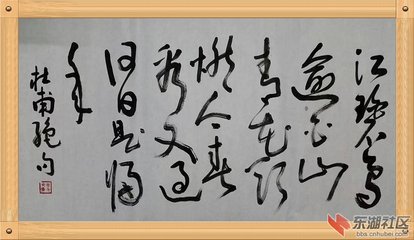 江碧鸟
逾白山
青花欲
燃今春
看又过
何日是归
年
杜甫绝句
东湖社区
bbs.cnhubei.com